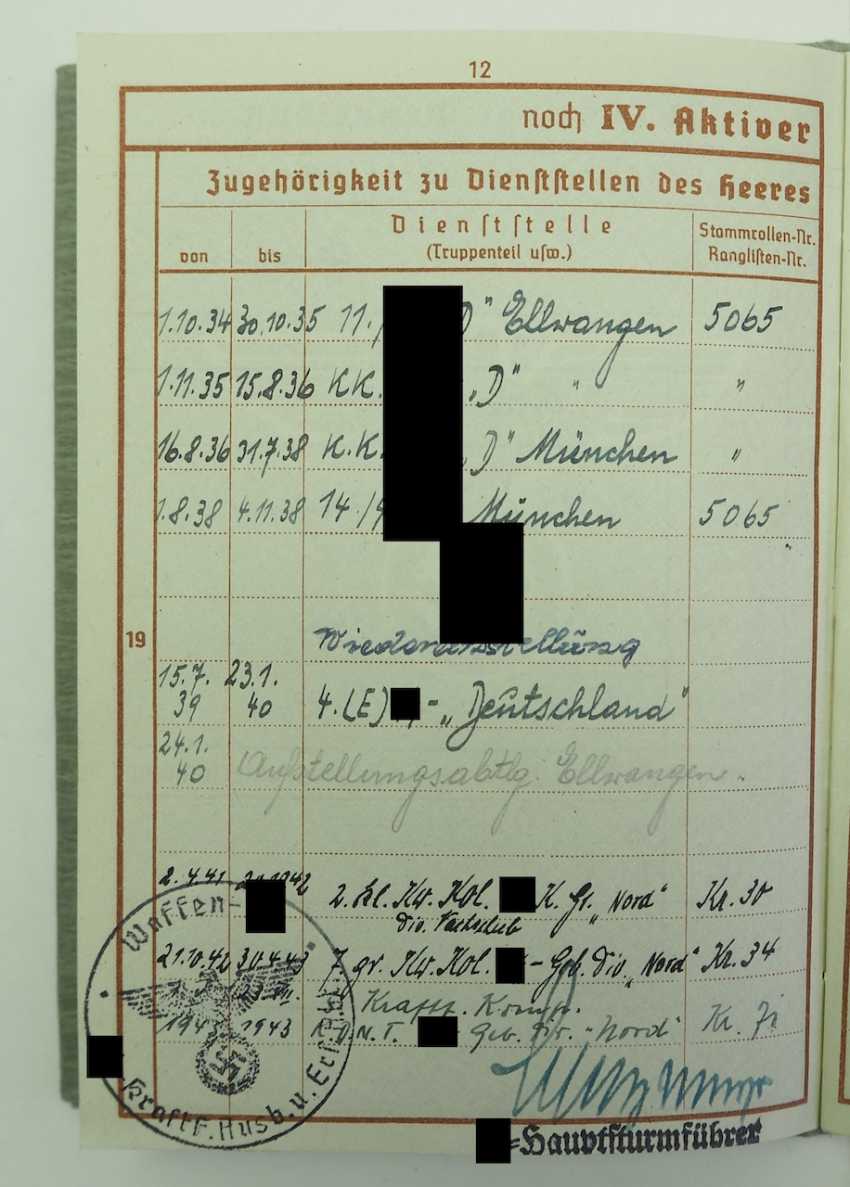 12
noch IV. Aktiver
Zugehörigkeit zu Dienststellen des Heeres
von bis Dienststelle (Truppenteil usw.) Stammrollen-Nr. Ranglisten-Nr.
1.10.34 30.10.35 11./ D" Ellwangen 5065
1.11.35 15.8.36 KK. „D" " "
16.8.36 31.7.38 K.K. „D" München "
1.8.38 4.11.38 14/ München 5065
19
15.7.39 23.1.40 4.(E) - „Deutschland"
24.1.40 Aufstellungsabtlg. Ellwangen.
2.4.41 1942 2. kl. Kw. Kol. K. Gr. „Nord" Kr. 30
Div.
21.10.42 30.4.43 7 gr. Kw. Kol. - Geb. Div. „Nord" Kr. 34
1943 1943 D.N.T. Geb. Div. "Nord" Kr.
Waffen-
Kraftf. Ausb. u. Ers.
=Hauptsturmführer